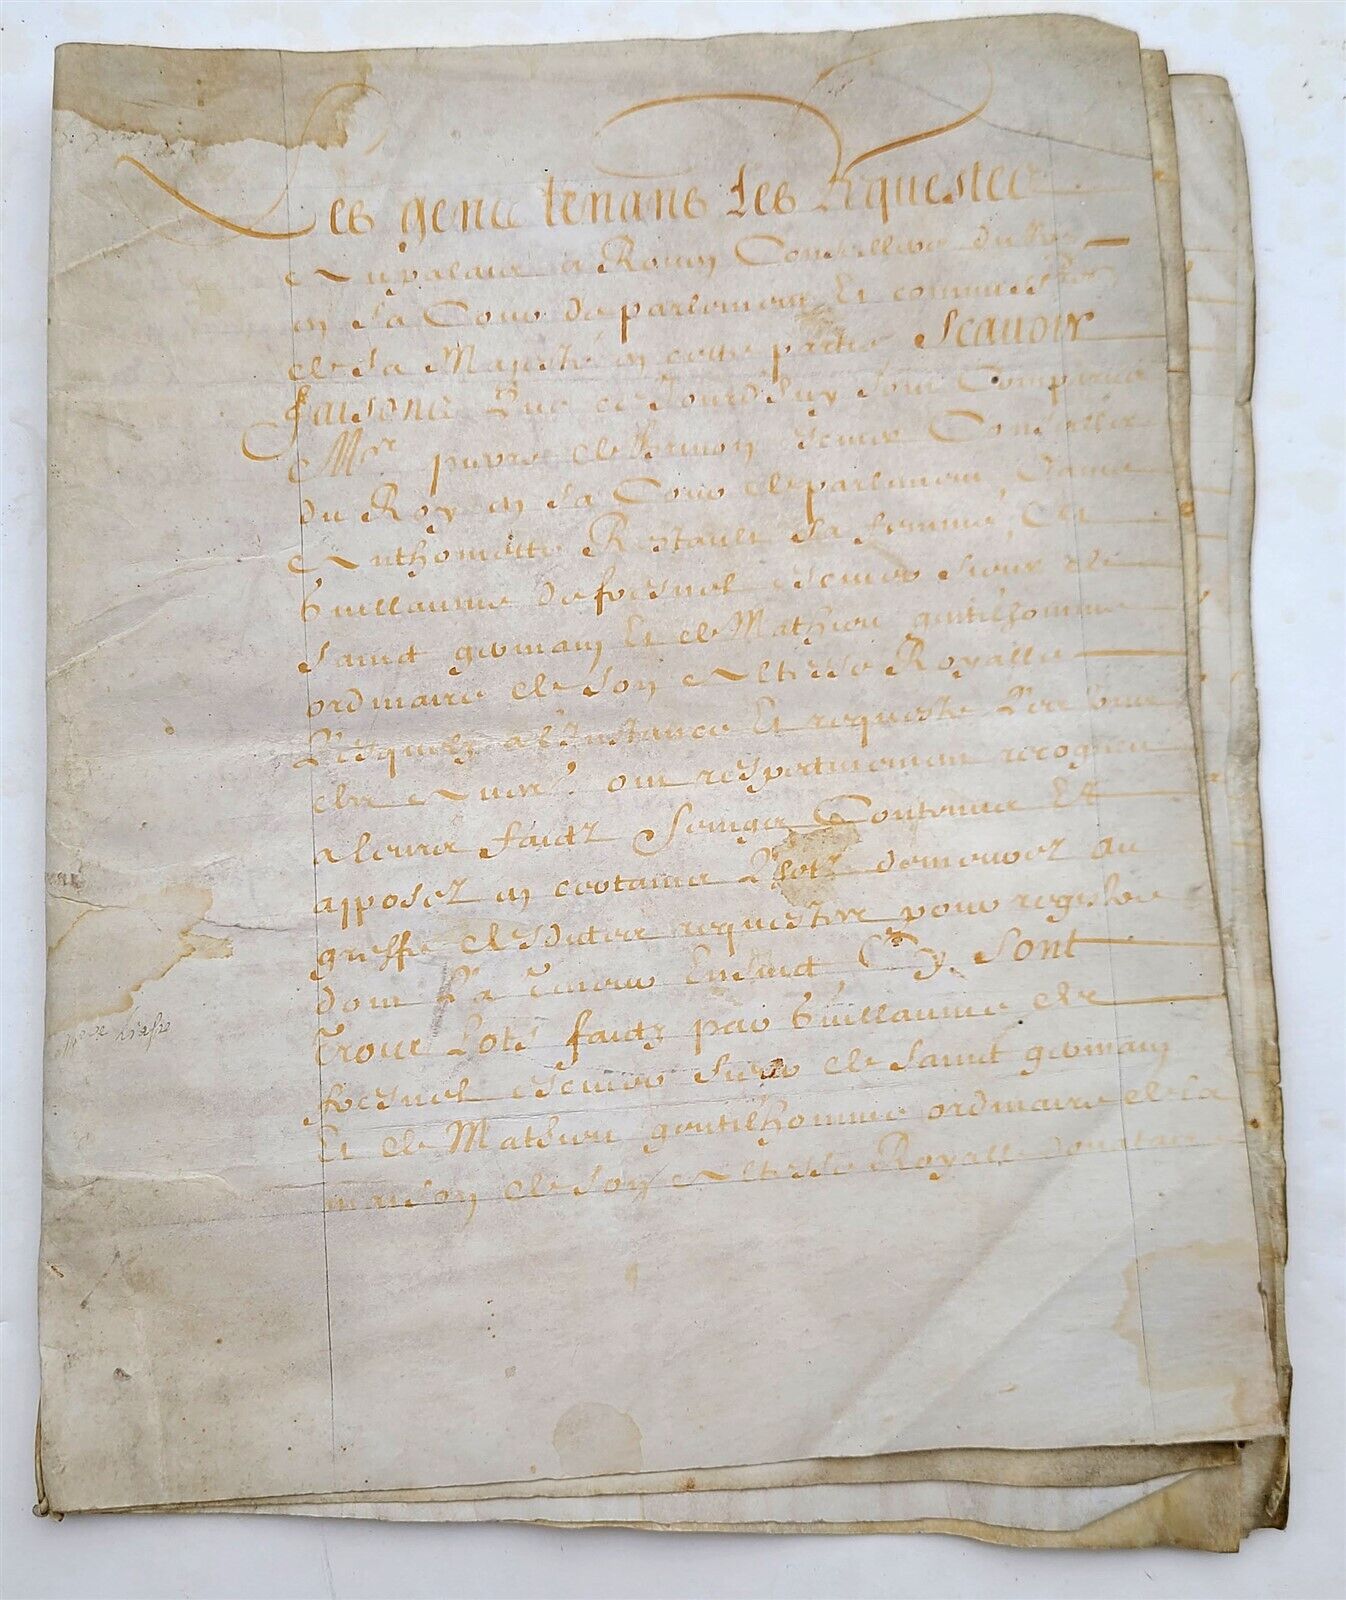 Les gens tenans Les Requestes
Au palais a Rouen Conseillers du Roy
en sa Cour de parlement Et commissres
de sa Majesté en cette partie Scavoir
faisons Que ce Jourdhuy sont Comparus
Mre pierre de Brinon escuier Conseiller
du Roy en sa Cour de parlement, Dame
Anthoinette Restault sa femme, Et
Guillaume de fresnel escuier sieur de
sainct germain Et de Mathieu gentilhomme
ordinaire de son Altesse Royalle
Lesquelz a linstance Et requeste Lun
ont respectivement recogneu
a leurs faictz seings Contenus Et
apposez en certains Lotz demeurez au
greffe desdites requestes pour registre
dont La teneur Ensuict Cy sont
Trois Lots faictz par Guillaume de
fresnel escuier sieur de sainct germain
Et de Mathieu gentilhomme ordinaire de la
maison de son Altesse Royalle